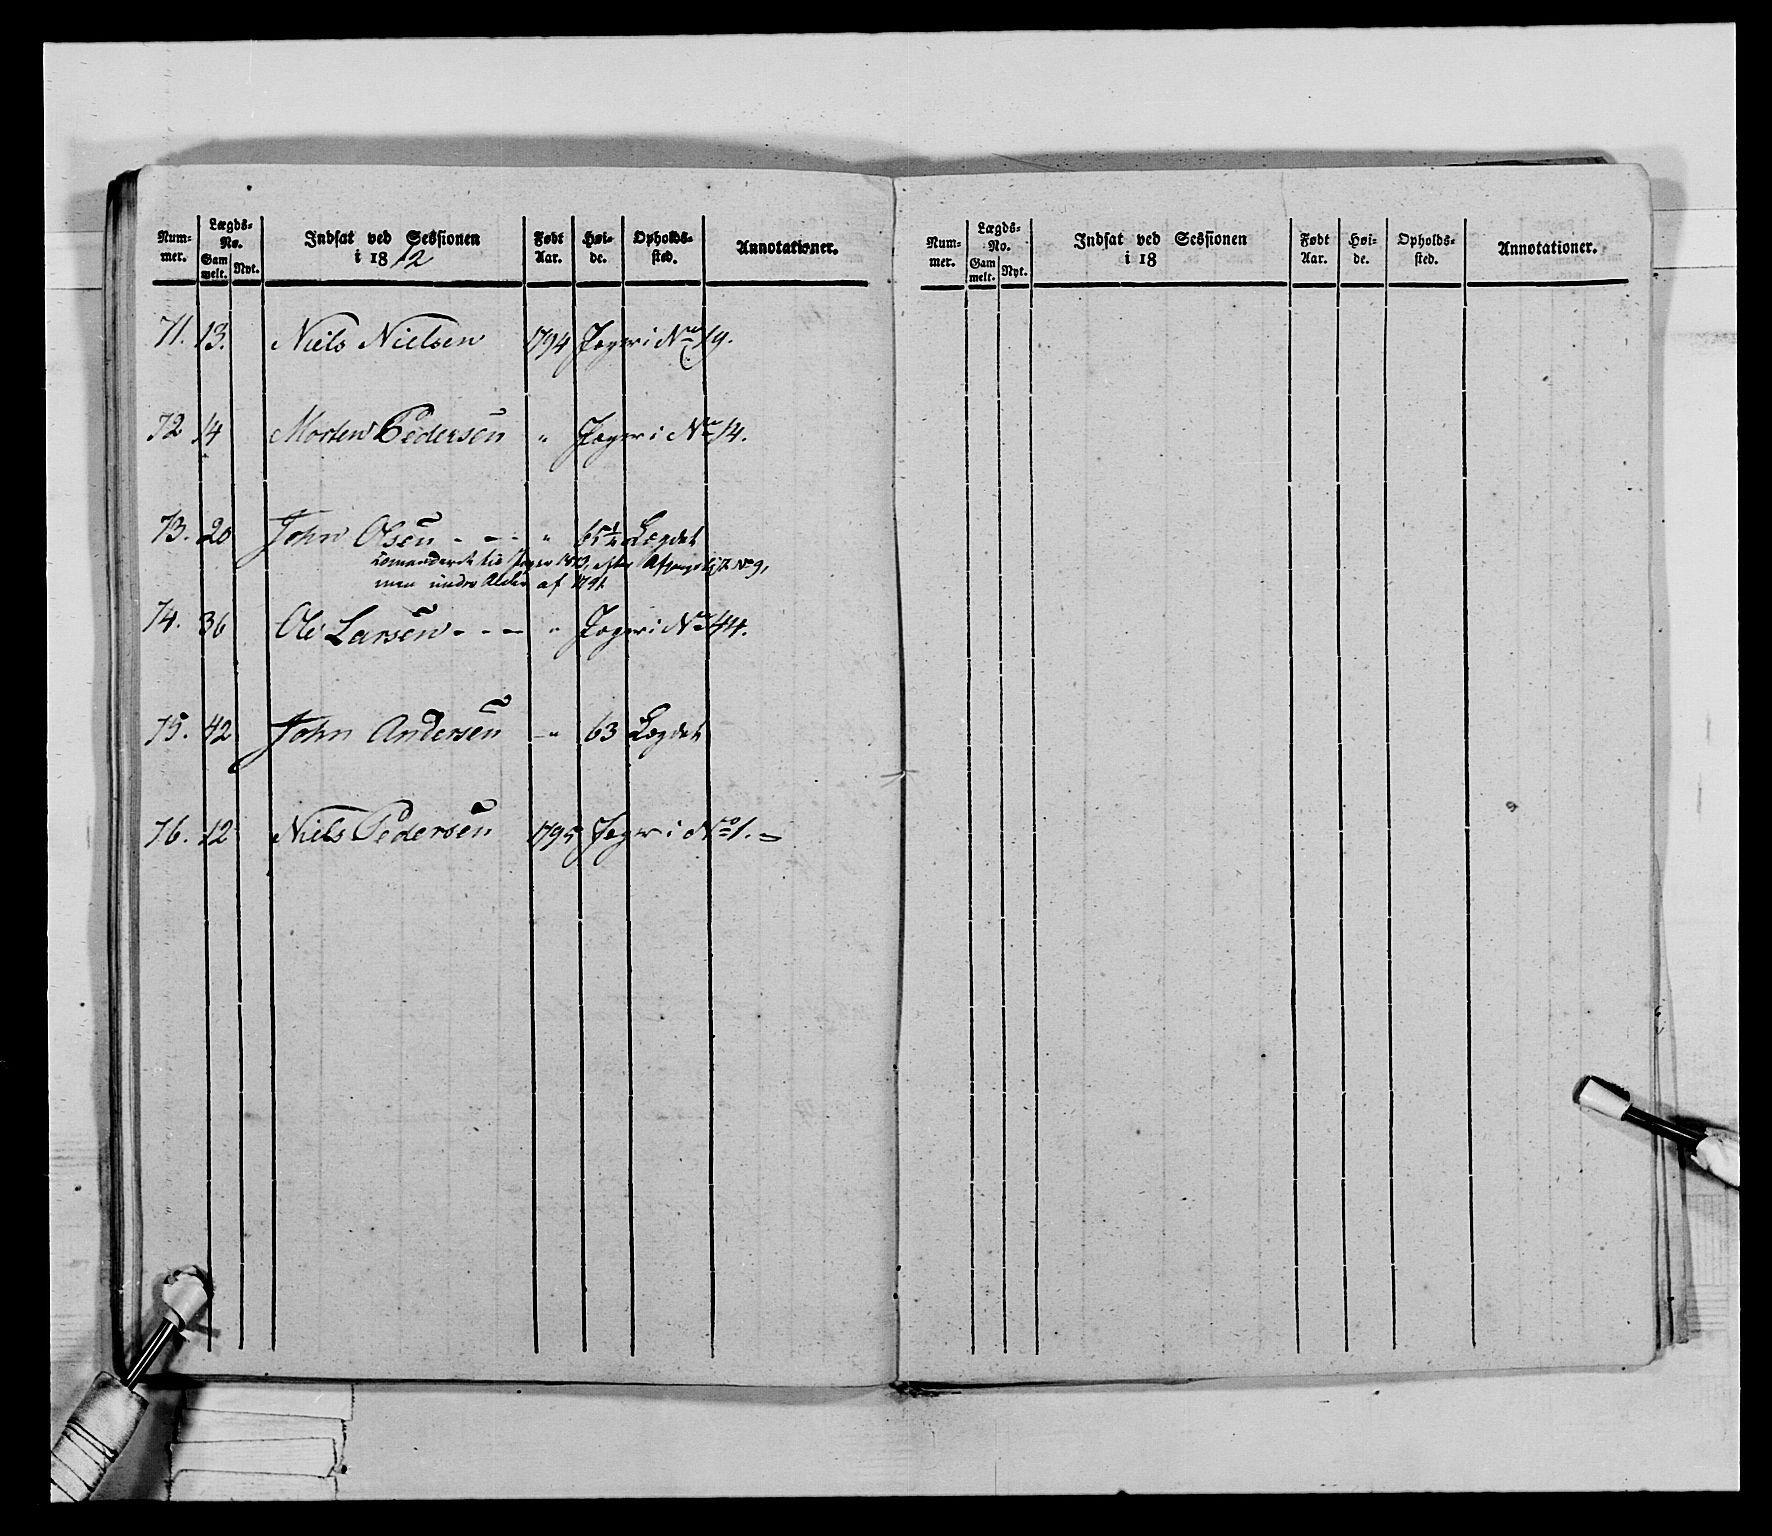 Num-
mer.
Lægds-
No.
Gam
melt.
Nyt.
Indsat ved Sessionen
i 1812
Født
Aar.
Høi-
de.
Opholds-
sted.
Annotationer.
71. 13. Niels Nielsen 1794 Jæger i No 19.
72 14 Morten Pedersen " Jæger i No 14.
73. 20 John Olsen - - - " 65½ Lægdet
men af 1791
74. 36 Ole Larsen - - - " Jæger i No 44.
75. 42 John Andersen - " 63 Lægdet
76. 12 Niels Pedersen 1795 Jæger i No 1. =
Num-
mer.
Lægds-
No.
Gam
melt.
Nyt.
Indsat ved Sessionen
i 18
Født
Aar.
Høi-
de.
Opholds-
sted.
Annotationer.